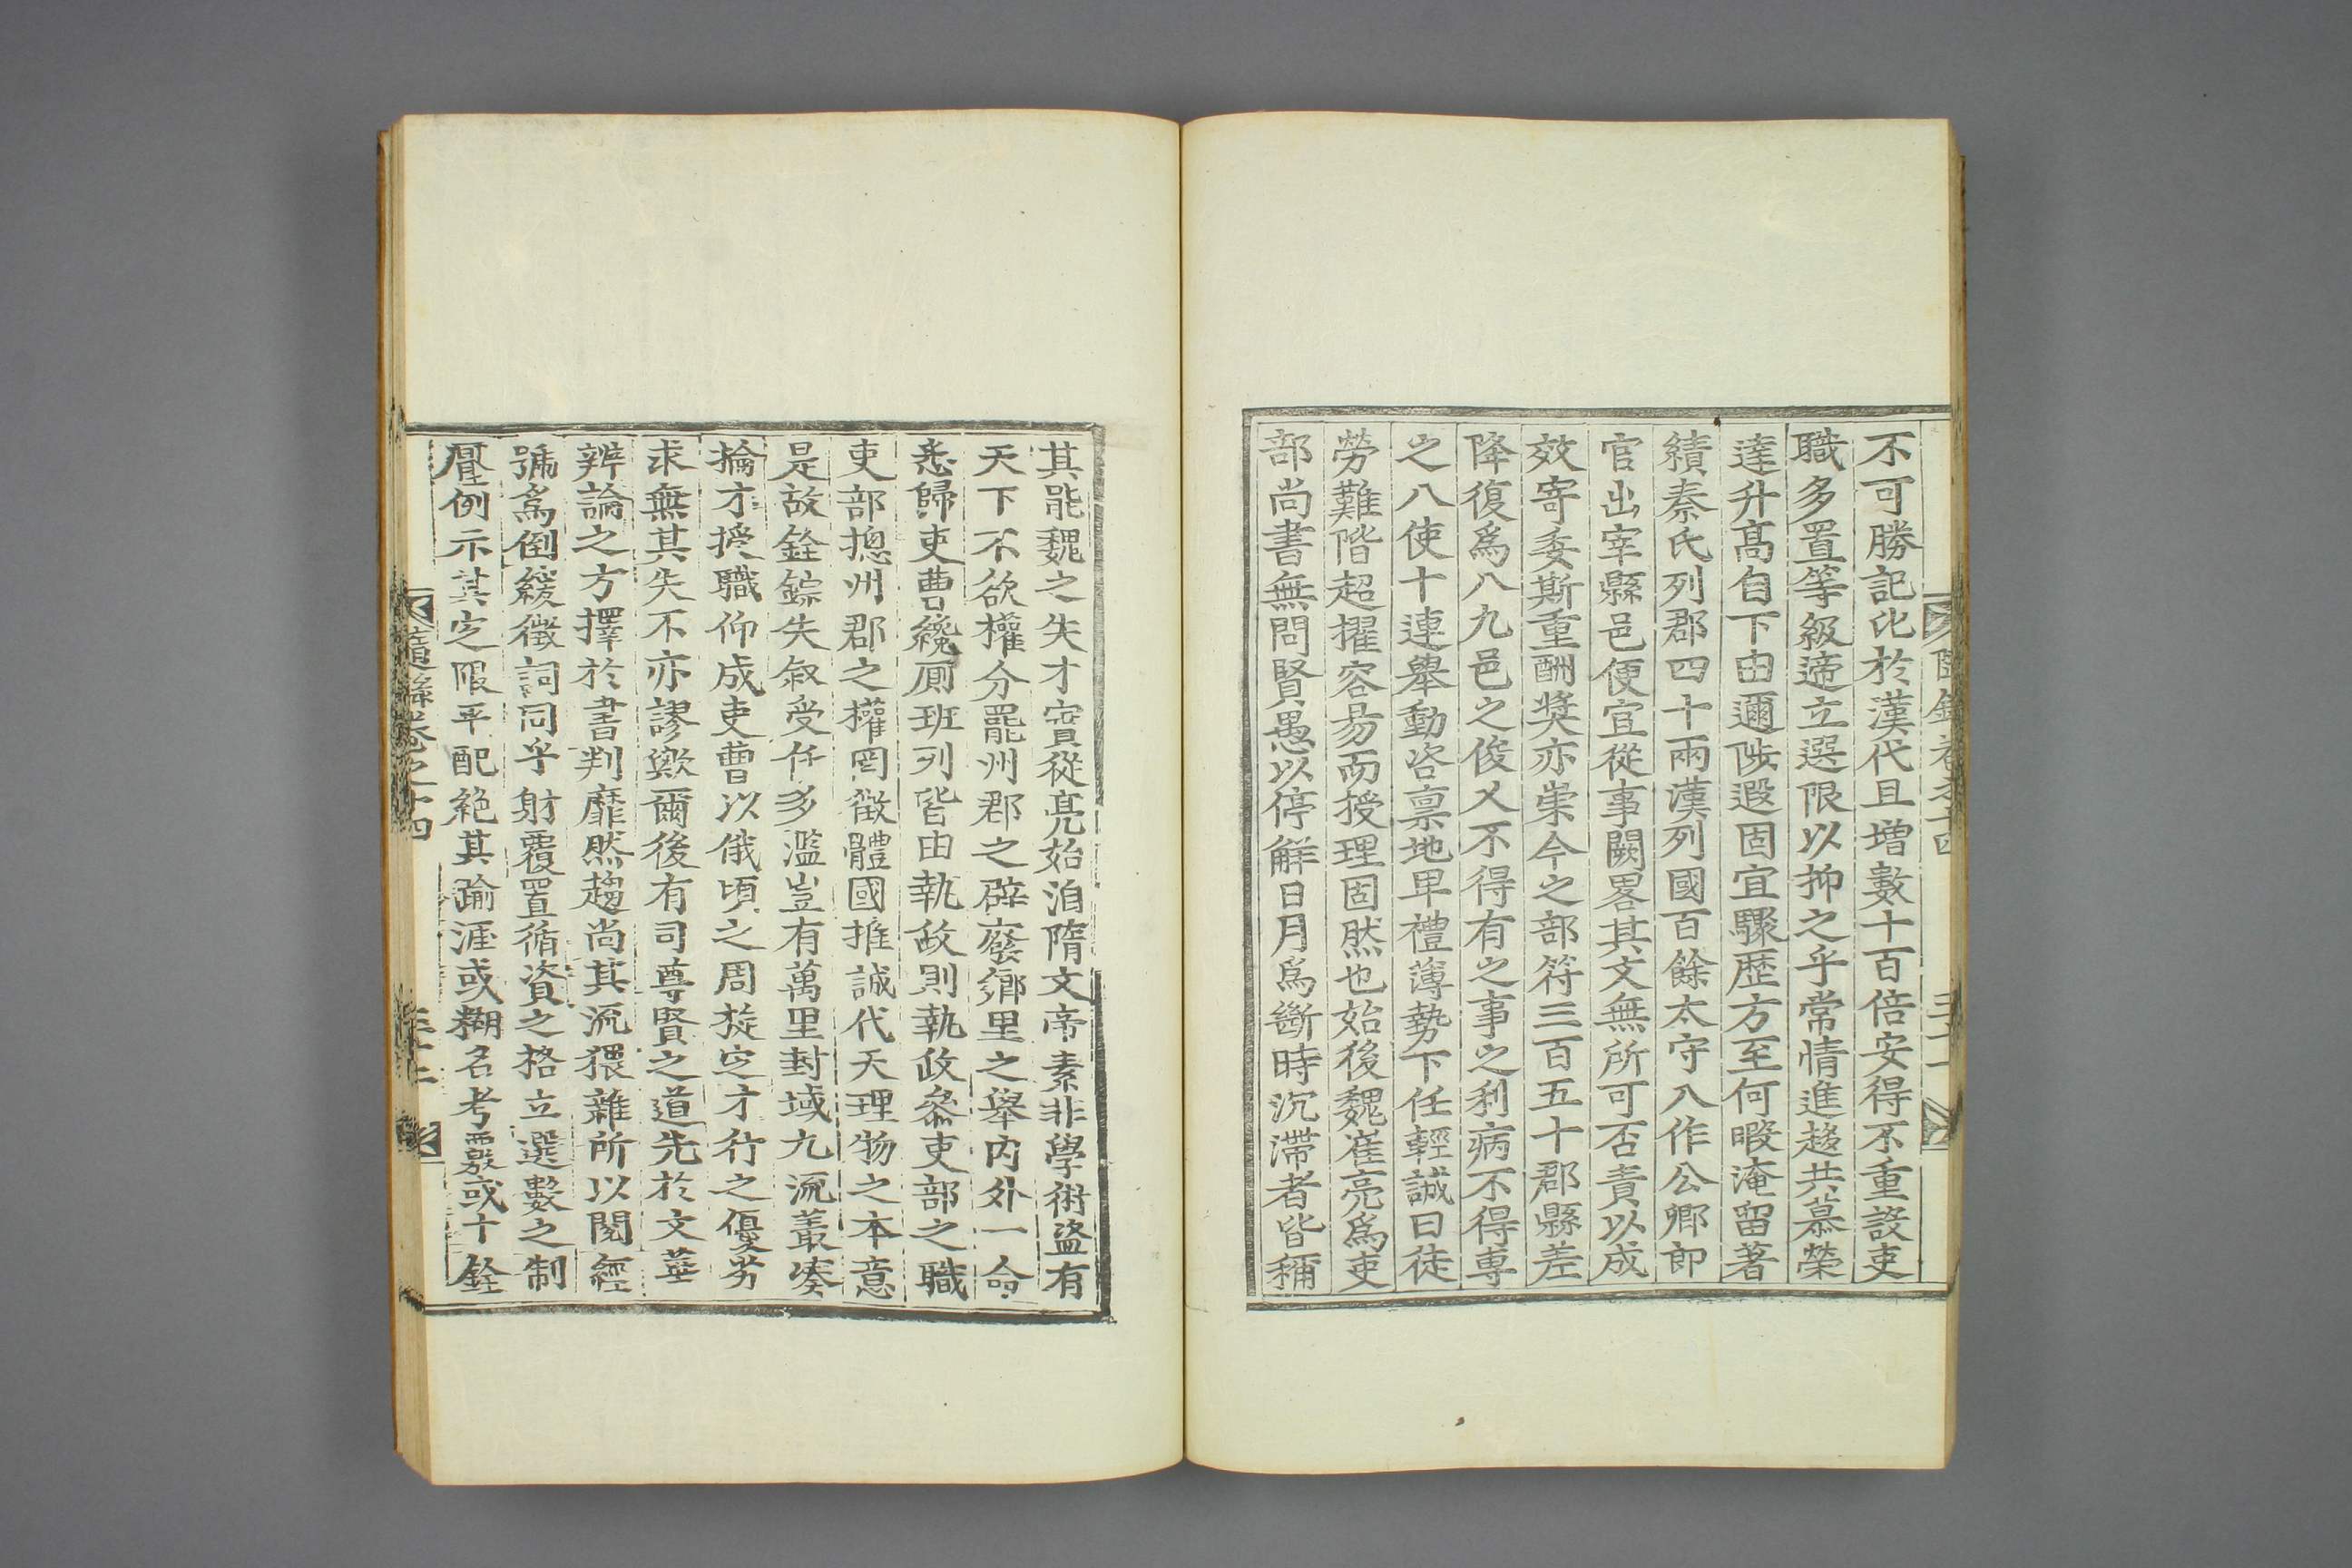 不可勝記比於漢代且增數十百倍安得不重設吏
職多置等級遞立選限以抑之乎常情進趨共慕榮
達升髙自下由邇陟遐固宜驟歷方至何暇淹留著
績秦氏列郡四十兩漢列國百餘太守入作公卿郎
官出宰縣邑便宜從事闕畧其文無所可否責以成
效寄委斯重酬奬亦崇今之部符三百五十郡縣差
降復爲八九邑之俊乂不得有之事之利病不得專
之八使十連舉動咨禀地卑禮薄勢下任輕誠曰徒
勞難階超擢容易而授理固然也始後魏崔亮爲吏
部尚書無問賢愚以停解日月爲斷時沉滯者皆稱
其能魏之失才實從亮始洎隋文帝素非學術盗有
天下不欲權分罷州郡之辟廢鄉里之舉内外一命
悉歸吏曹纔厠班列皆由執政則執政叅吏部之職
吏部揔州郡之權罔徵體國推誠代天理物之本意
是故銓綜失叙受任多濫豈有萬里封域九流叢湊
掄才授職仰成吏曹以俄頃之周旋定才行之優劣
求無其失不亦謬歟爾後有司尊賢之道先於文華
辨論之方擇於書判靡然趨尚其流猥雜所以閱經
號爲倒綬徵詞同乎射覆置循資之格立選數之制
壓例示其定限平配絶其踰涯或糊名考覈或十銓
隨錄卷之十四